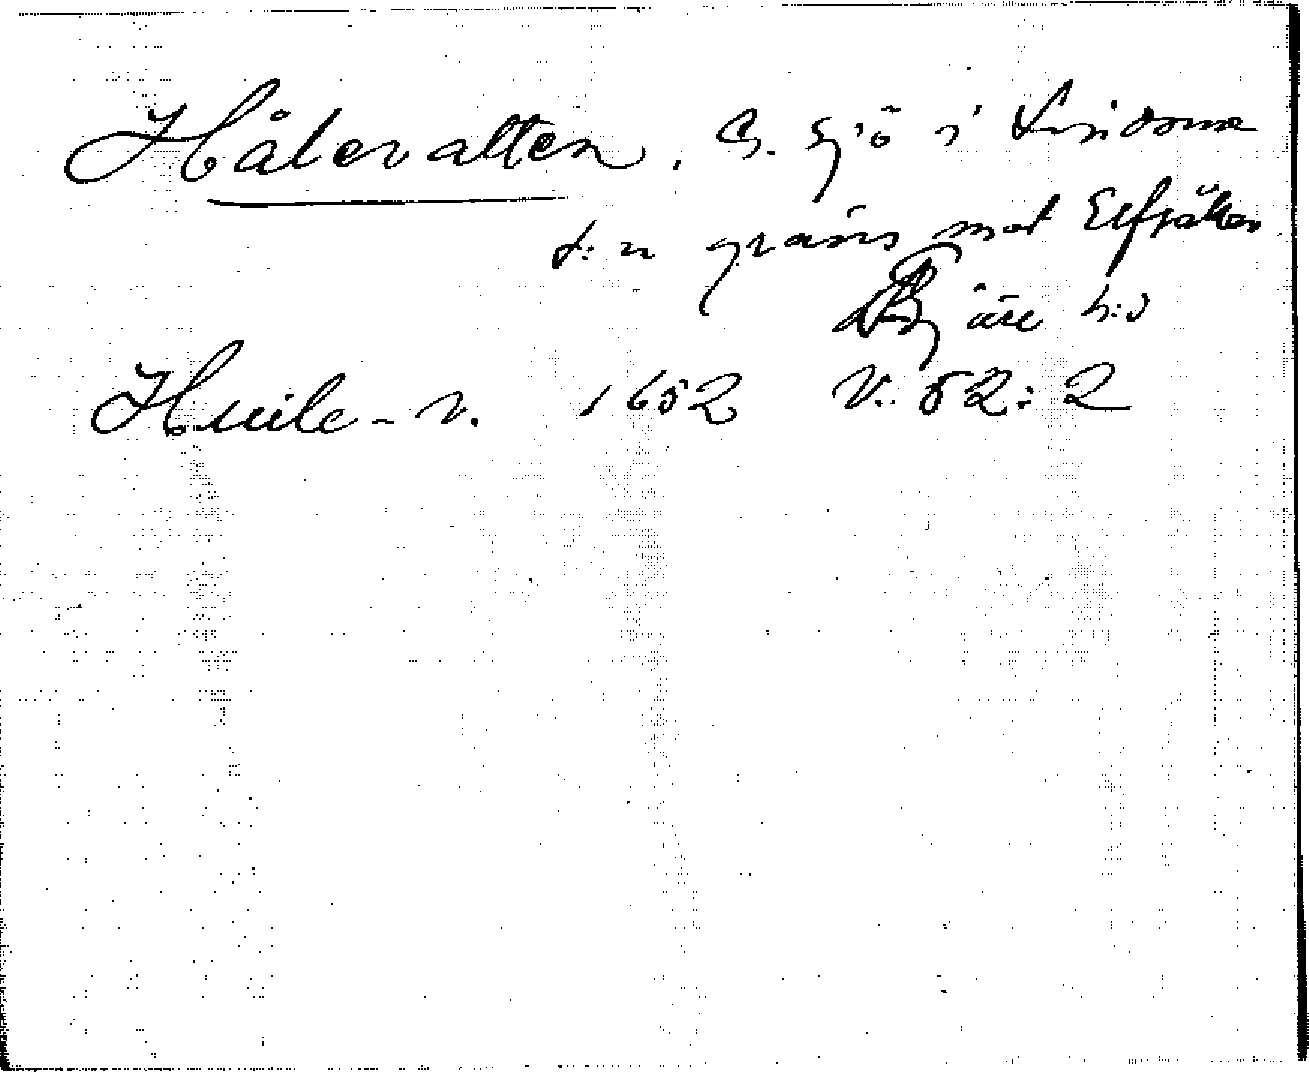 Hålevatten. G. sjö i Lindome
s:n gräns mot Elfsåkers
Bjäre h:d
Huile-v. 1652 V. 52:2